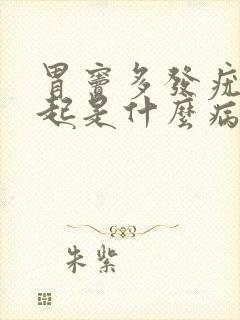 胃竇多發疣
起是什麼病
朱紫